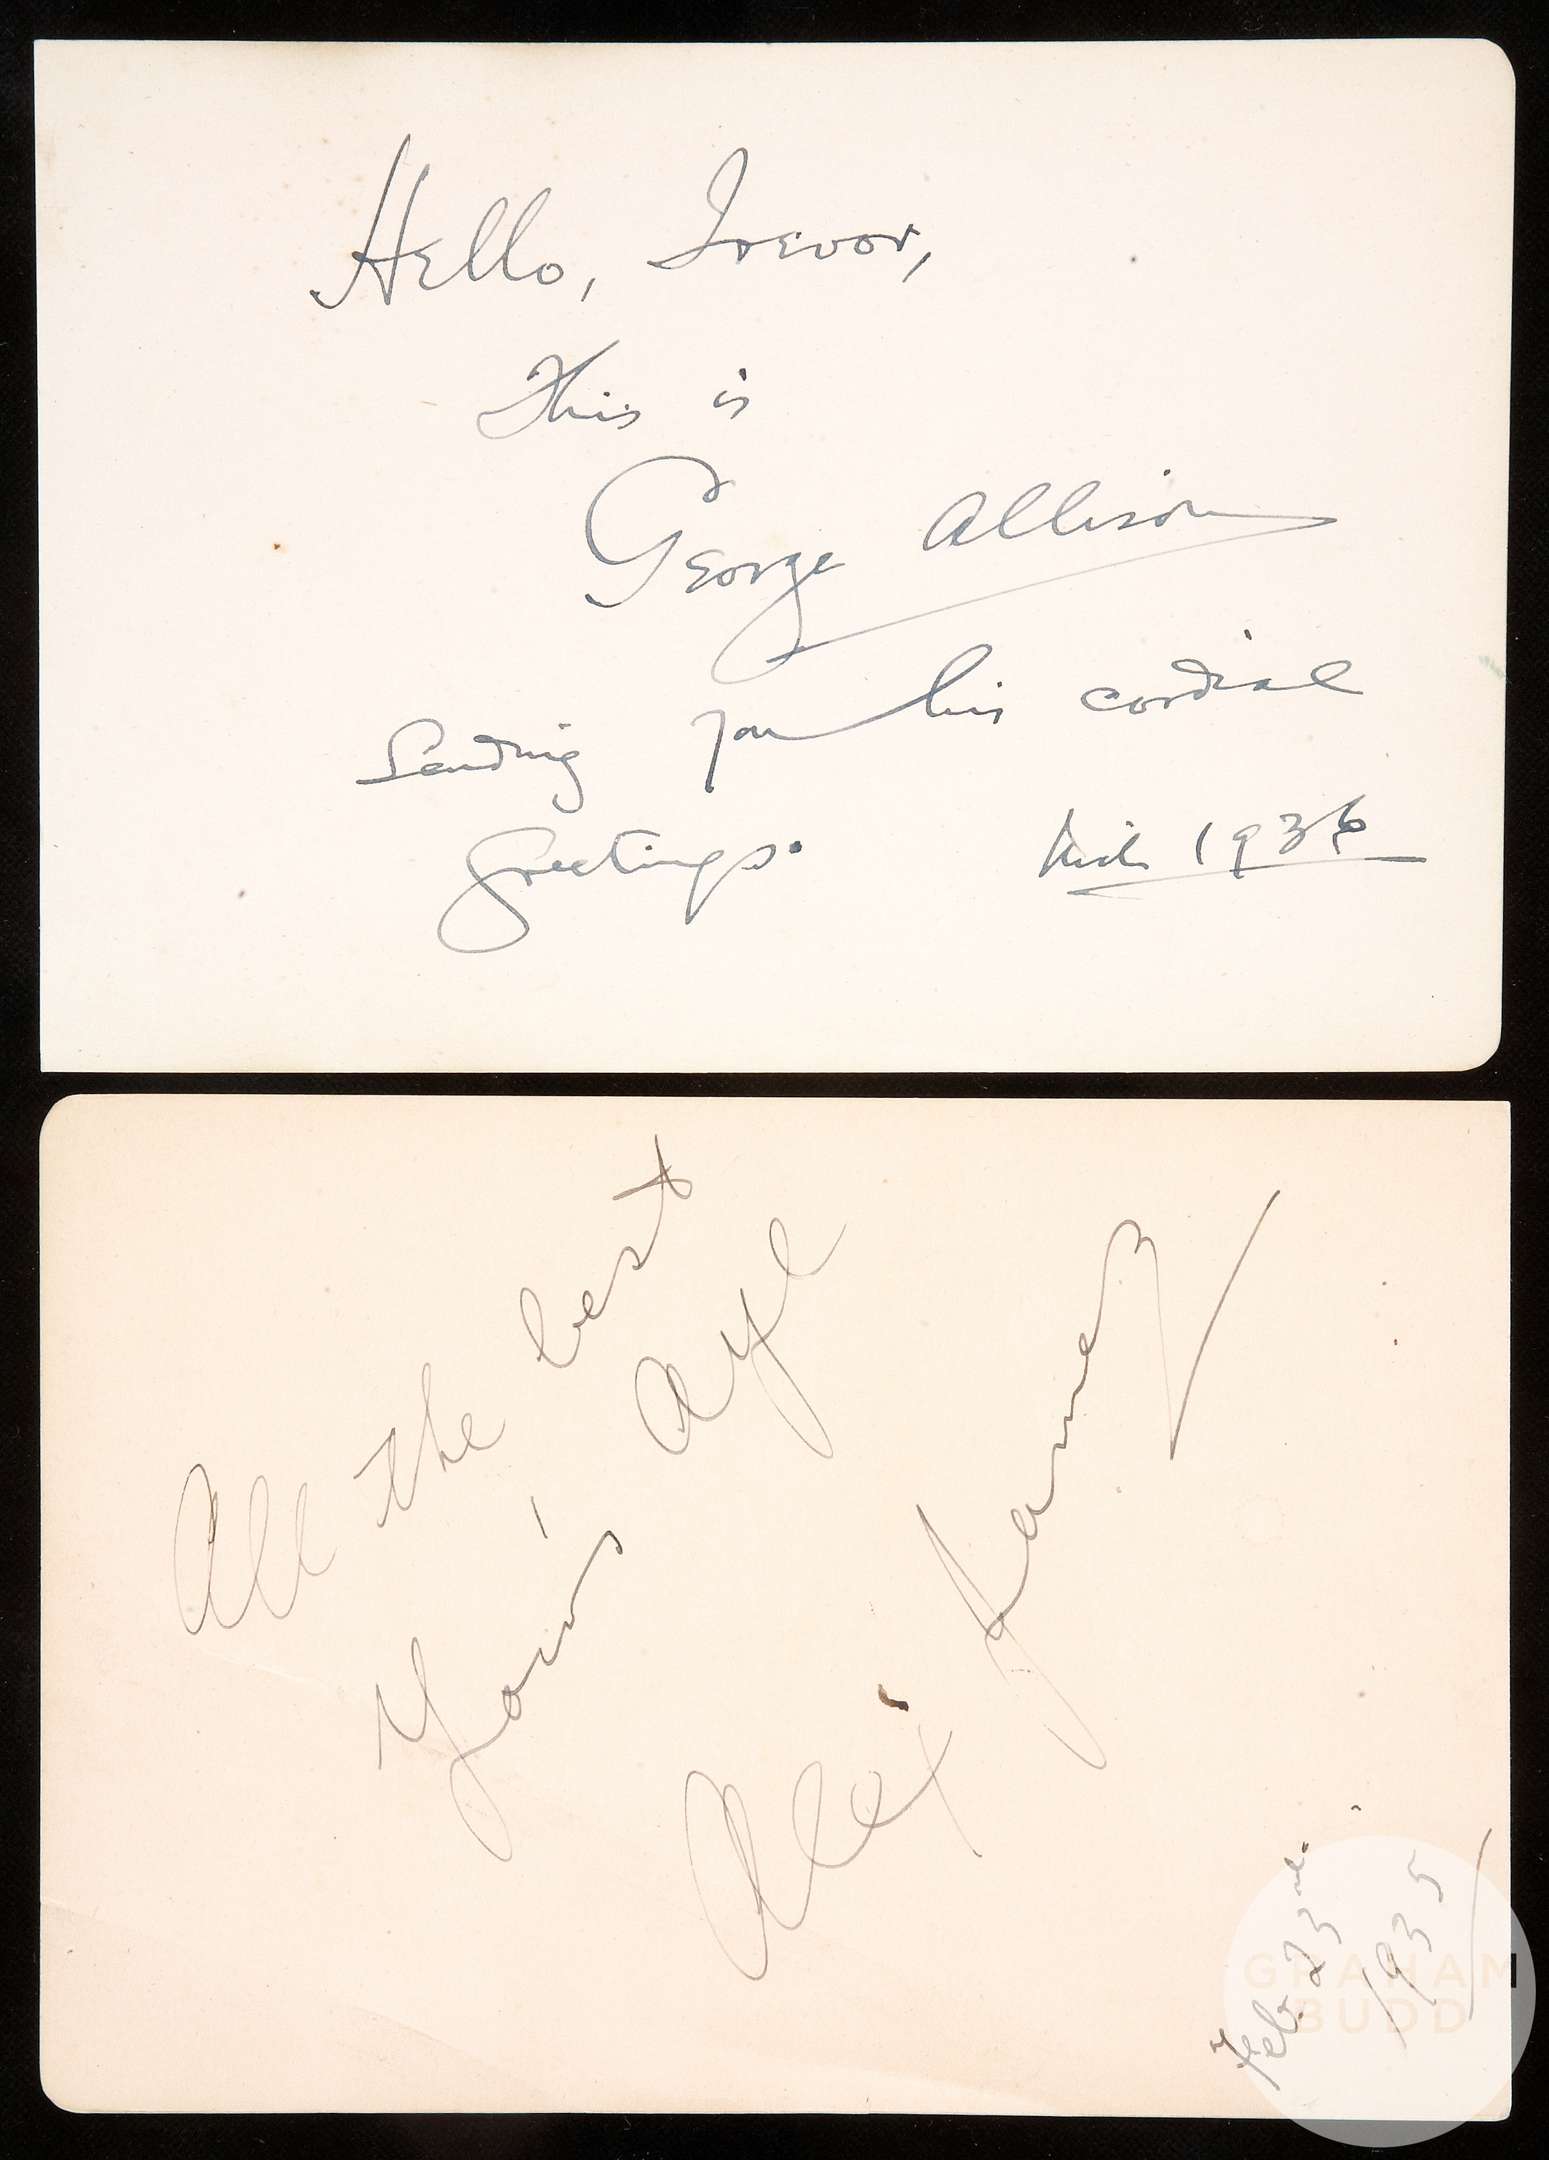 Hello, Trevor,
This is
George Allison
Sending you his cordial
greetings.
Mch 1936
All the best
Your's Aye
Alex James
Feb. 23rd.
1935
GRAHAM
BUDD